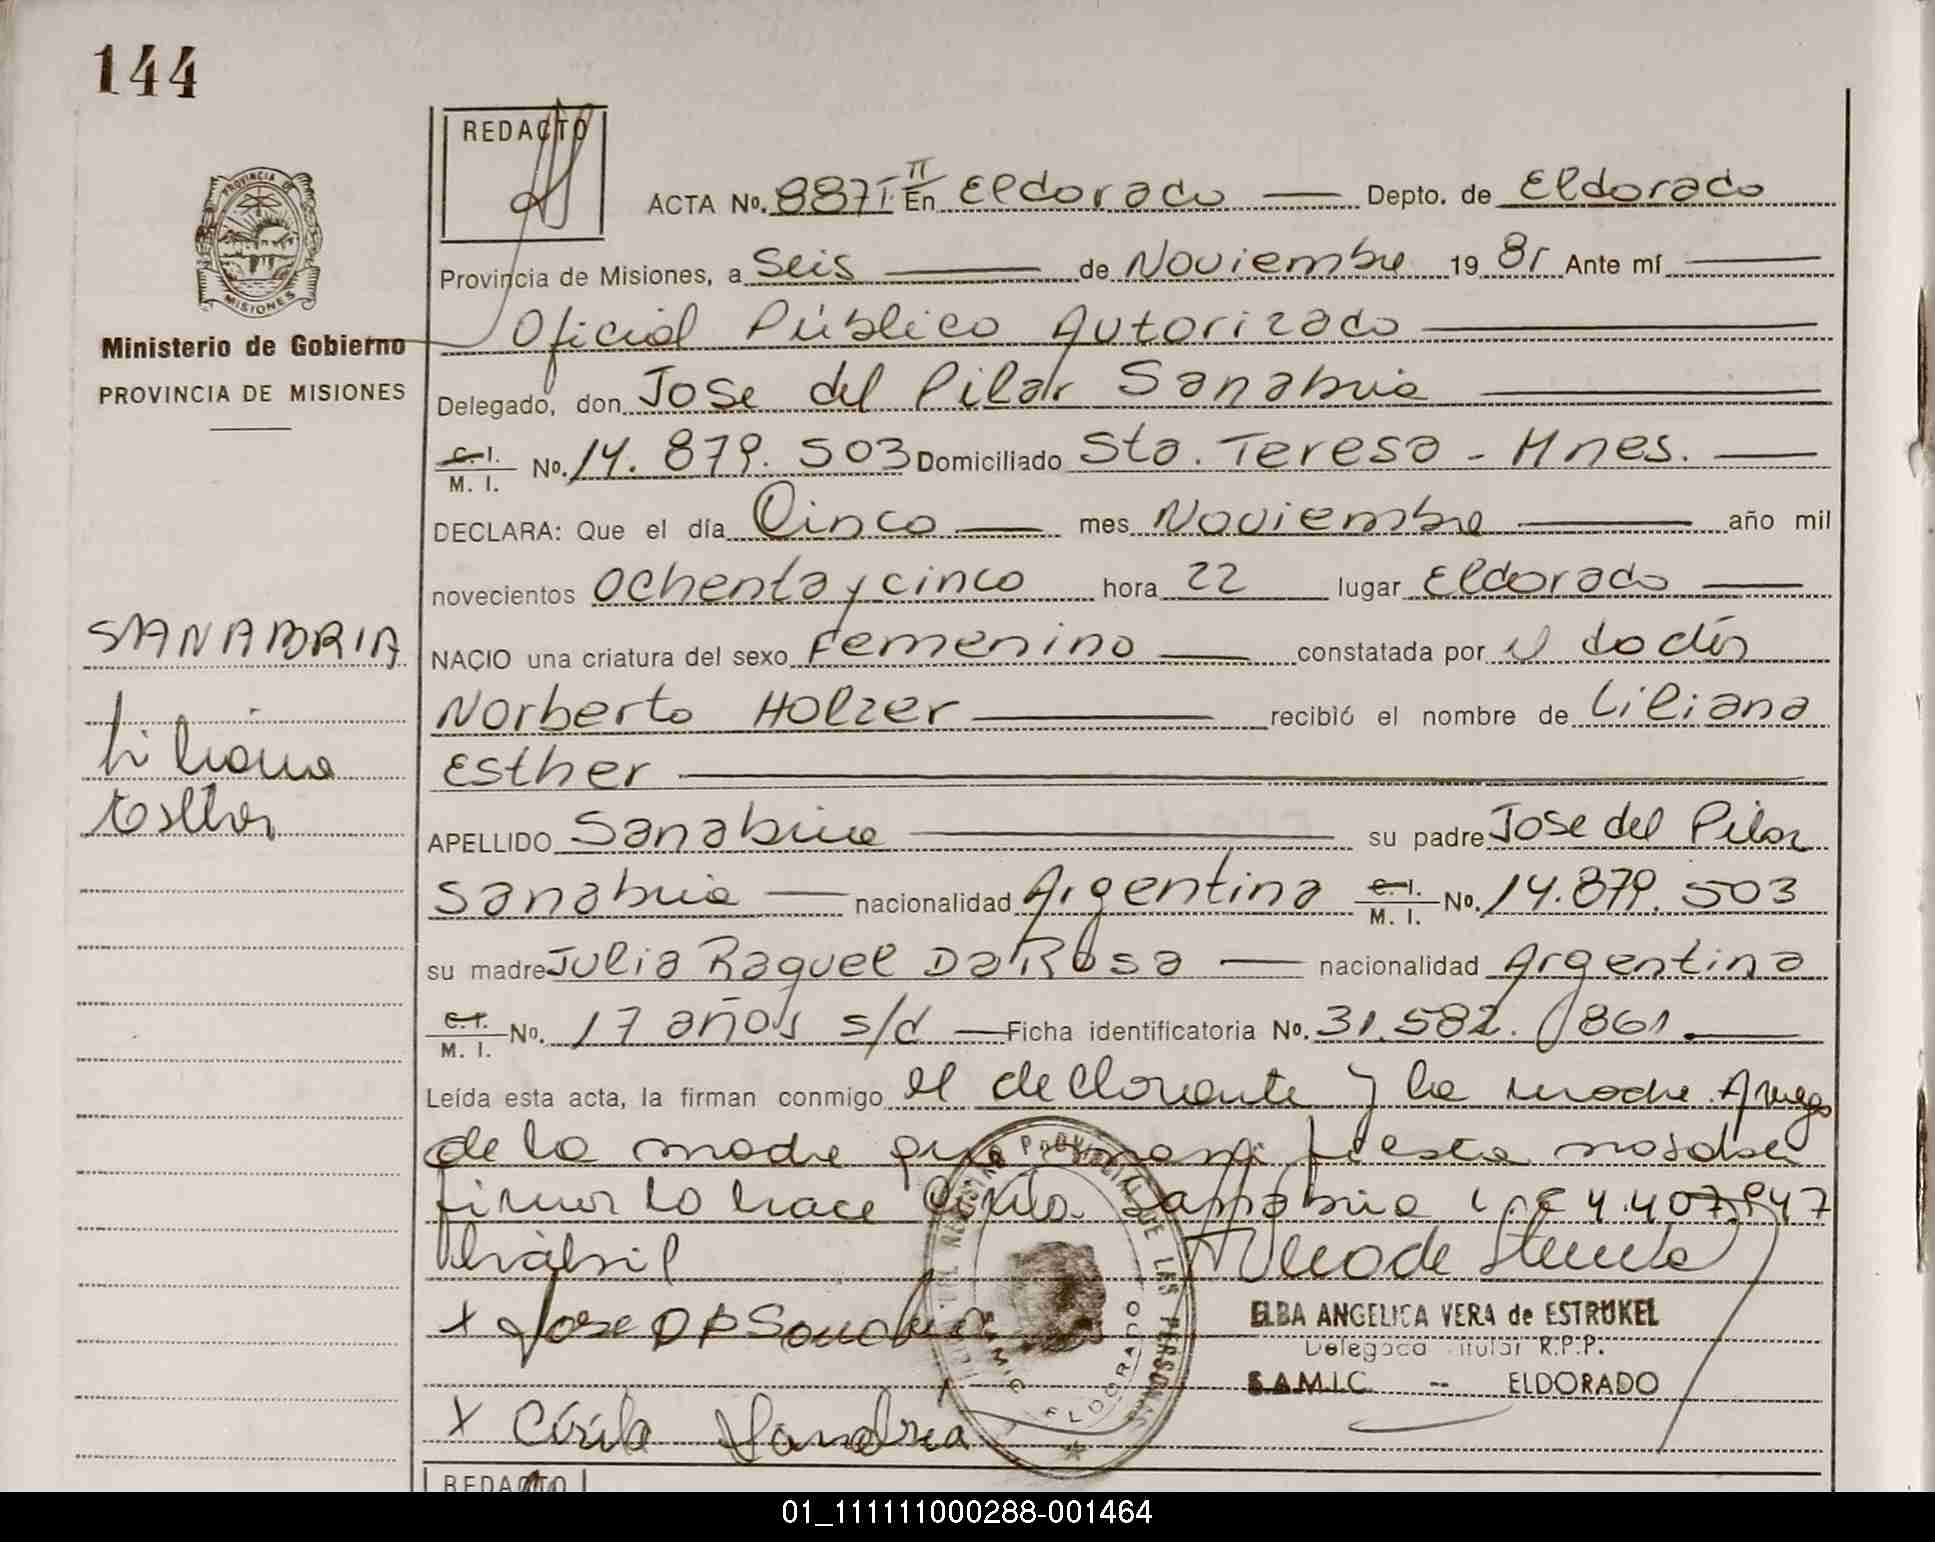 144
REDACTO
PROVINCIA DE
MISIONES
ACTA No. 887 I II En Eldorado Depto. de Eldorado
Provincia de Misiones, a Seis de Noviembre 1985 Ante mí
Ministerio de Gobierno
Oficial Público Autorizado
PROVINCIA DE MISIONES
Delegado, don Jose del Pilar Sanabria
C. I. M. I. No. 14.879.503 Domiciliado Sta. Teresa - Mnes.
DECLARA: Que el día Cinco mes Noviembre año mil
novecientos ochenta y cinco hora 22 lugar Eldorado
SANABRIA
NACIO una criatura del sexo Femenino constatada por el doctor
Norberto Holzer recibió el nombre de Liliana
Liliana
Esther
Esther
APELLIDO Sanabria su padre Jose del Pilar
Sanabria nacionalidad Argentina C. I. M. I. No. 14.879.503
su madre Julia Raquel Da Rosa nacionalidad Argentina
C. I. M. I. No. 17 años s/d Ficha identificatoria No. 31.582.861.
Leída esta acta, la firman conmigo el declarante y la madre. A ruego
de la madre que manifiesta no saber
firmar lo hace Cirila Sanabria
hábil
x Jose D P Sanabria
ELBA ANGELICA VERA de ESTRUKEL
Delegada Titular R.P.P.
S.A.M.I.C. -- ELDORADO
x Cirila Sanabria
REGISTRO PROVINCIAL DE LAS PERSONAS
ELDORADO
REDACTO
01_111111000288-001464